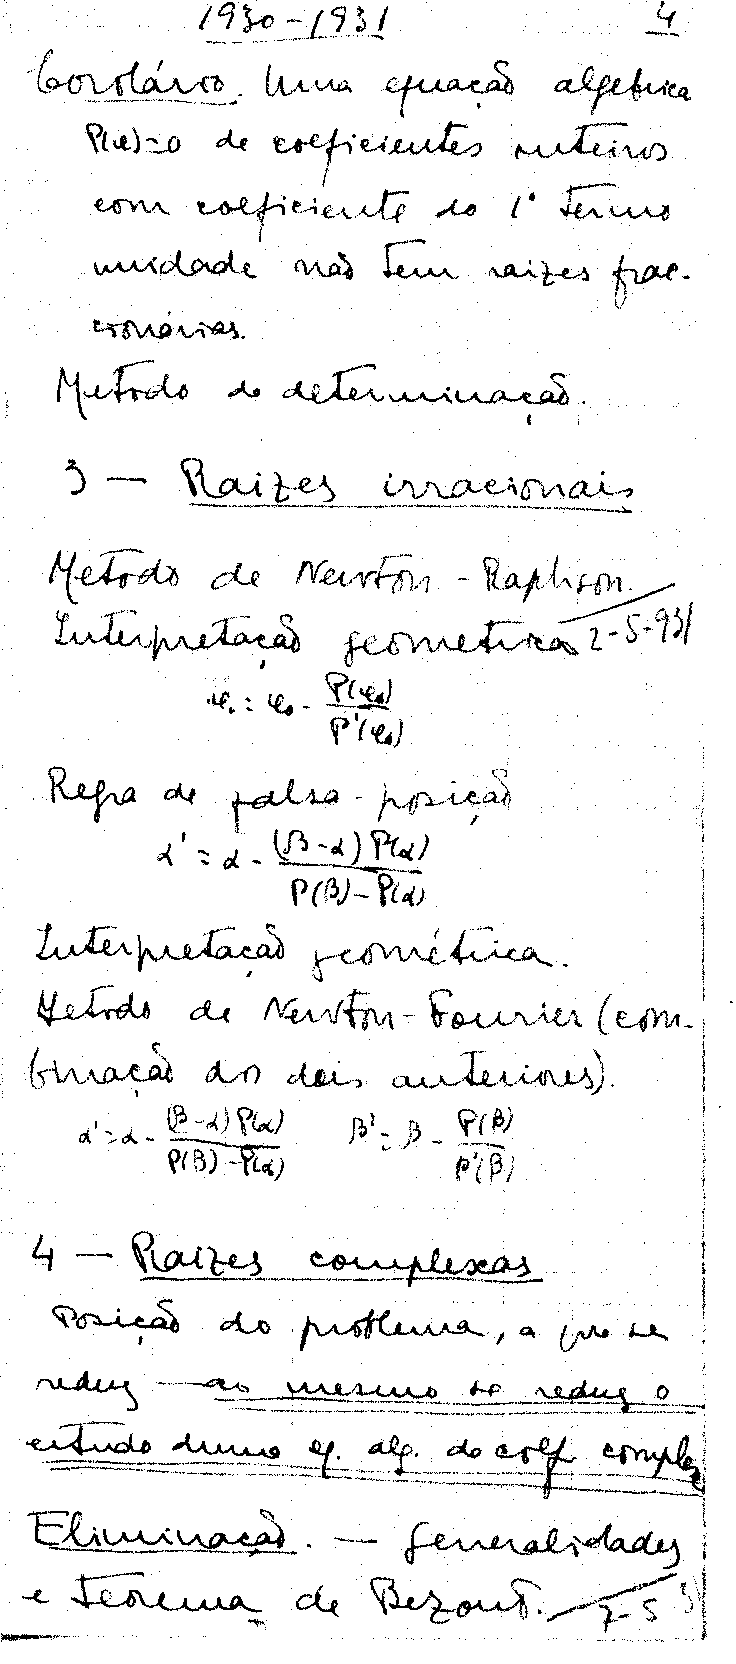 1930-1931 4
Corolário. Uma equação algebrica
P(x)=0 de coeficientes inteiros
com coeficiente do 1º termo
unidade não tem raizes frac-
cionárias.
Metodo de determinação.
3 — Raizes irracionais
Metodo de Newton-Raphson.
Interpretação geometrica 2-5-931
x₁ = x₀ - P(x₀)/P'(x₀)
Regra de falsa-posição
α' = α - (β-α)P(α)/P(β)-P(α)
Interpretação geométrica.
Metodo de Newton-Fourier (com-
binação dos dois anteriores).
α' = α - (β-α)P(α)/P(β)-P(α) β' = β - P(β)/P'(β)
4 — Raizes complexas
Posição do problema, a que se
reduz — ao mesmo se reduz o
estudo duma eq. alg. de coef. complex
Eliminação. — Generalidades
e teorema de Bezout. 7-5